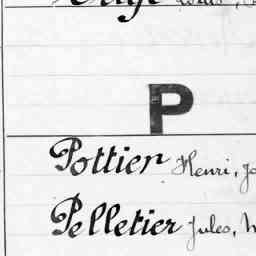 P
Pottier Henri, Jo
Pelletier Jules,